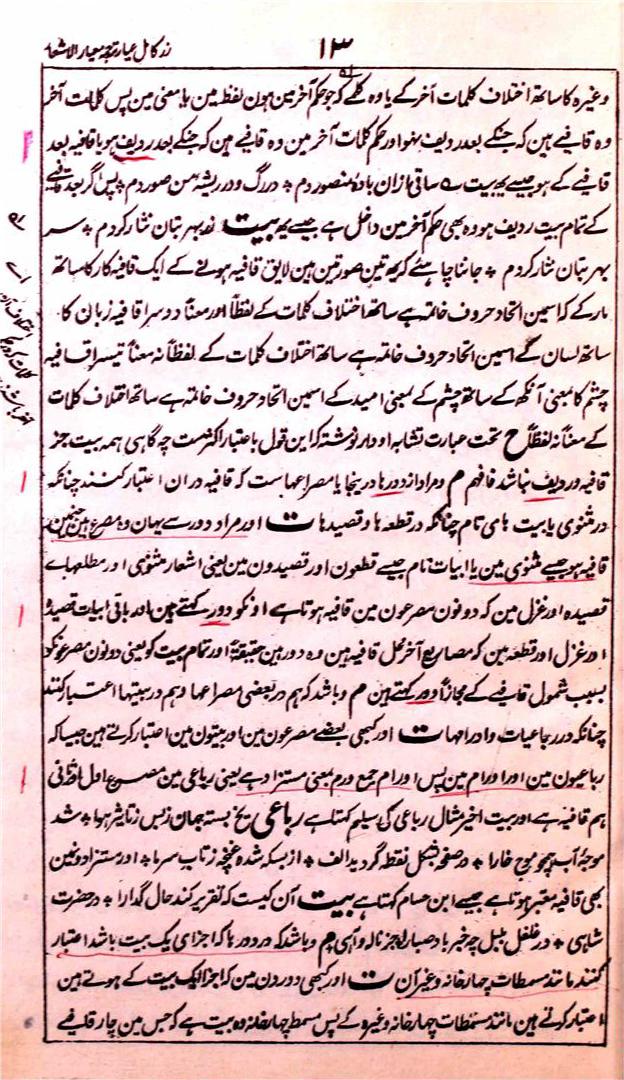 زر کامل عیار ترجمہ معیار الاشعار
۱۳
وغیرہ کا ساتھ اختلاف کلمات آخر کے یا وہ کلمے کہ جو حکم آخر مین ہون لفظ مین یا معنی مین پس کلمات آخر
وہ قافیے ہین کہ جنکے بعد ردیف نہو اور حکم کلمات آخر مین وہ قافیے ہین کہ جنکے بعد ردیف ہو یا قافیہ بعد
قافیے کے ہو جیسے یہ بیت ے ساقی ازان بادۂ منصور دم ٭ در رگ و در ریشۂ من صور دم ٭ پس اگر بعد قافیے
کے تمام بیت ردیف ہو وہ بھی حکم آخر مین داخل ہے جیسے یہ بیت زر بہر بتان نثار کردم ٭ سر
بہر بتان نثار کردم ٭ جاننا چاہئے کہ یہ تین صورتین ہین لایق قافیہ ہونے کے ایک قافیہ کار کا ساتھ
مار کے کہ اسمین اتحاد حروف خاتمہ ہے ساتھ اختلاف کلمات کے لفظاً اور معناً دوسرا قافیہ زبان کا
ساتھ لسان کے اسمین اتحاد حروف خاتمہ ہے ساتھ اختلاف کلمات کے لفظاً نہ معناً تیسرا قافیہ
چشم کا بمعنی آنکھ کے ساتھ چشم کے بمعنی امید کے اسمین اتحاد حروف خاتمہ ہے ساتھ اختلاف کلمات
کے معناً نہ لفظاً تحت عبارت تشابہ او دار نوشتہ کہ این قول باعتبار اکثرست چہ گاہی ہمہ بیت جز
قافیہ و ردیف نباشد فافہم م و مراد از دورہا درینجا یا مصراعہاست کہ قافیہ در ان اعتبار کنند چنانکہ
در مثنوی یا بیت ہای تام چنانکہ در قطعہ ہا و قصیدہا ت اور مراد دور سے یہان وہ مصرع ہین جنمین
قافیہ ہو جیسے مثنوی مین یا ابیات تام جیسے قطعون اور قصیدون مین یعنی اشعار مثنوی اور مطلعہاے
قصیدہ اور غزل مین کہ دونون مصرعون مین قافیہ ہوتا ہے اونکو دور کہتے ہین اور باقی ابیات قصیدہ
اور غزل اور قطعہ مین کہ مصاریع آخر محل قافیہ ہین وہ دور ہین حقیقۃً اور تمام بیت کو یعنی دونون مصرعونکو
بسبب شمول قافیے کے مجازاً دور کہتے ہین م و باشد کہ ہم در بعضی مصراعہا و ہم در بیتہا اعتبار کنند
چنانکہ در رباعیات و اورامہا ت اور کبھی بعضے مصرعون مین اور بیتون مین اعتبار کرتے ہین جیسا کہ
رباعیون مین اور اورام مین پس اورام جمع ورم بمعنی مستزاد ہے یعنی رباعی مین مصرع اول و ثانی
ہم قافیہ ہے اور بیت اخیر مثال رباعی کی سیلم کہتا ہے رباعی یخ بستہ جہان ز بس ز تاثیر ہوا ٭ شد
موجۂ آب ہمچو موج خارا ٭ در صفحہ بشکل نقطہ گردید الف ٭ از بسکہ شدہ غنچہ ز تاب سرما ٭ اور مستزاد مین
بھی قافیہ معتبر ہوتا ہے جیسے ابن حسام کہتا ہے بیت آن کیست کہ تقریر کند حال گدارا ٭ در حضرت
شاہی ٭ در غلغل بلبل چہ خبر باد صبا را ٭ جز نالہ و آہی م و باشد کہ در دورہا کہ اجزای یک بیت باشد اعتبار
کنند مانند مسمطات چہارخانہ و غیر آن ت اور کبھی دورون مین کہ اجزا ایک بیت کے ہوتے ہین
اعتبار کرتے ہین مانند مسمطات چہارخانہ وغیرہ کے پس مسمط چہارخانہ وہ بیت ہے کہ جس مین چار قافیے